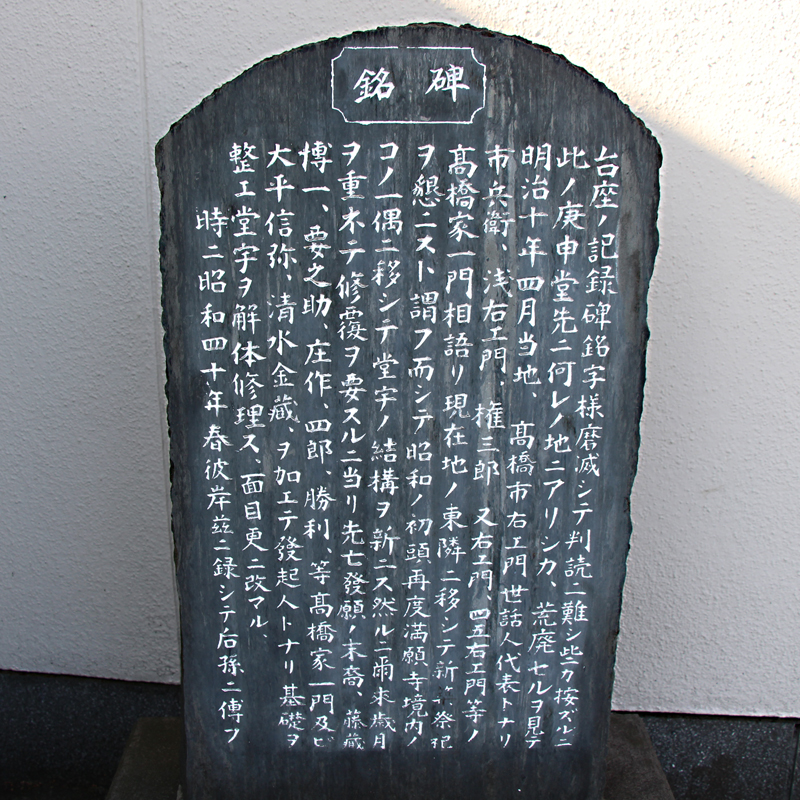 碑銘
台座ノ記録碑銘字様磨滅シテ判読ニ難シ此ニカ按ズルニ
此ノ庚申堂先ニ何レノ地ニアリシカ、荒廃セルヲ見テ
明治十年四月当地、髙橋市右エ門世話人代表トナリ
市兵衛、浅右エ門、権三郎 又右エ門、四五右エ門等ノ
髙橋家一門相語リ現在地ノ東隣ニ移シテ新ニ祭祀
ヲ懇ニスト謂フ而シテ昭和ノ初頭再度満願寺境内ノ
コノ一偶ニ移シテ堂宇ノ結構ヲ新ニス然ルニ爾来歳月
ヲ重ネテ修覆ヲ要スルニ当リ先亡發願ノ末裔、藤藏
博一、要之助、庄作、四郎、勝利、等髙橋家一門及ビ
大平信弥、清水金藏、ヲ加エテ發起人トナリ基礎ヲ
整エ堂宇ヲ解体修理ス、面目更ニ改マル、
時ニ昭和四十年春彼岸茲ニ録シテ后孫ニ傳フ